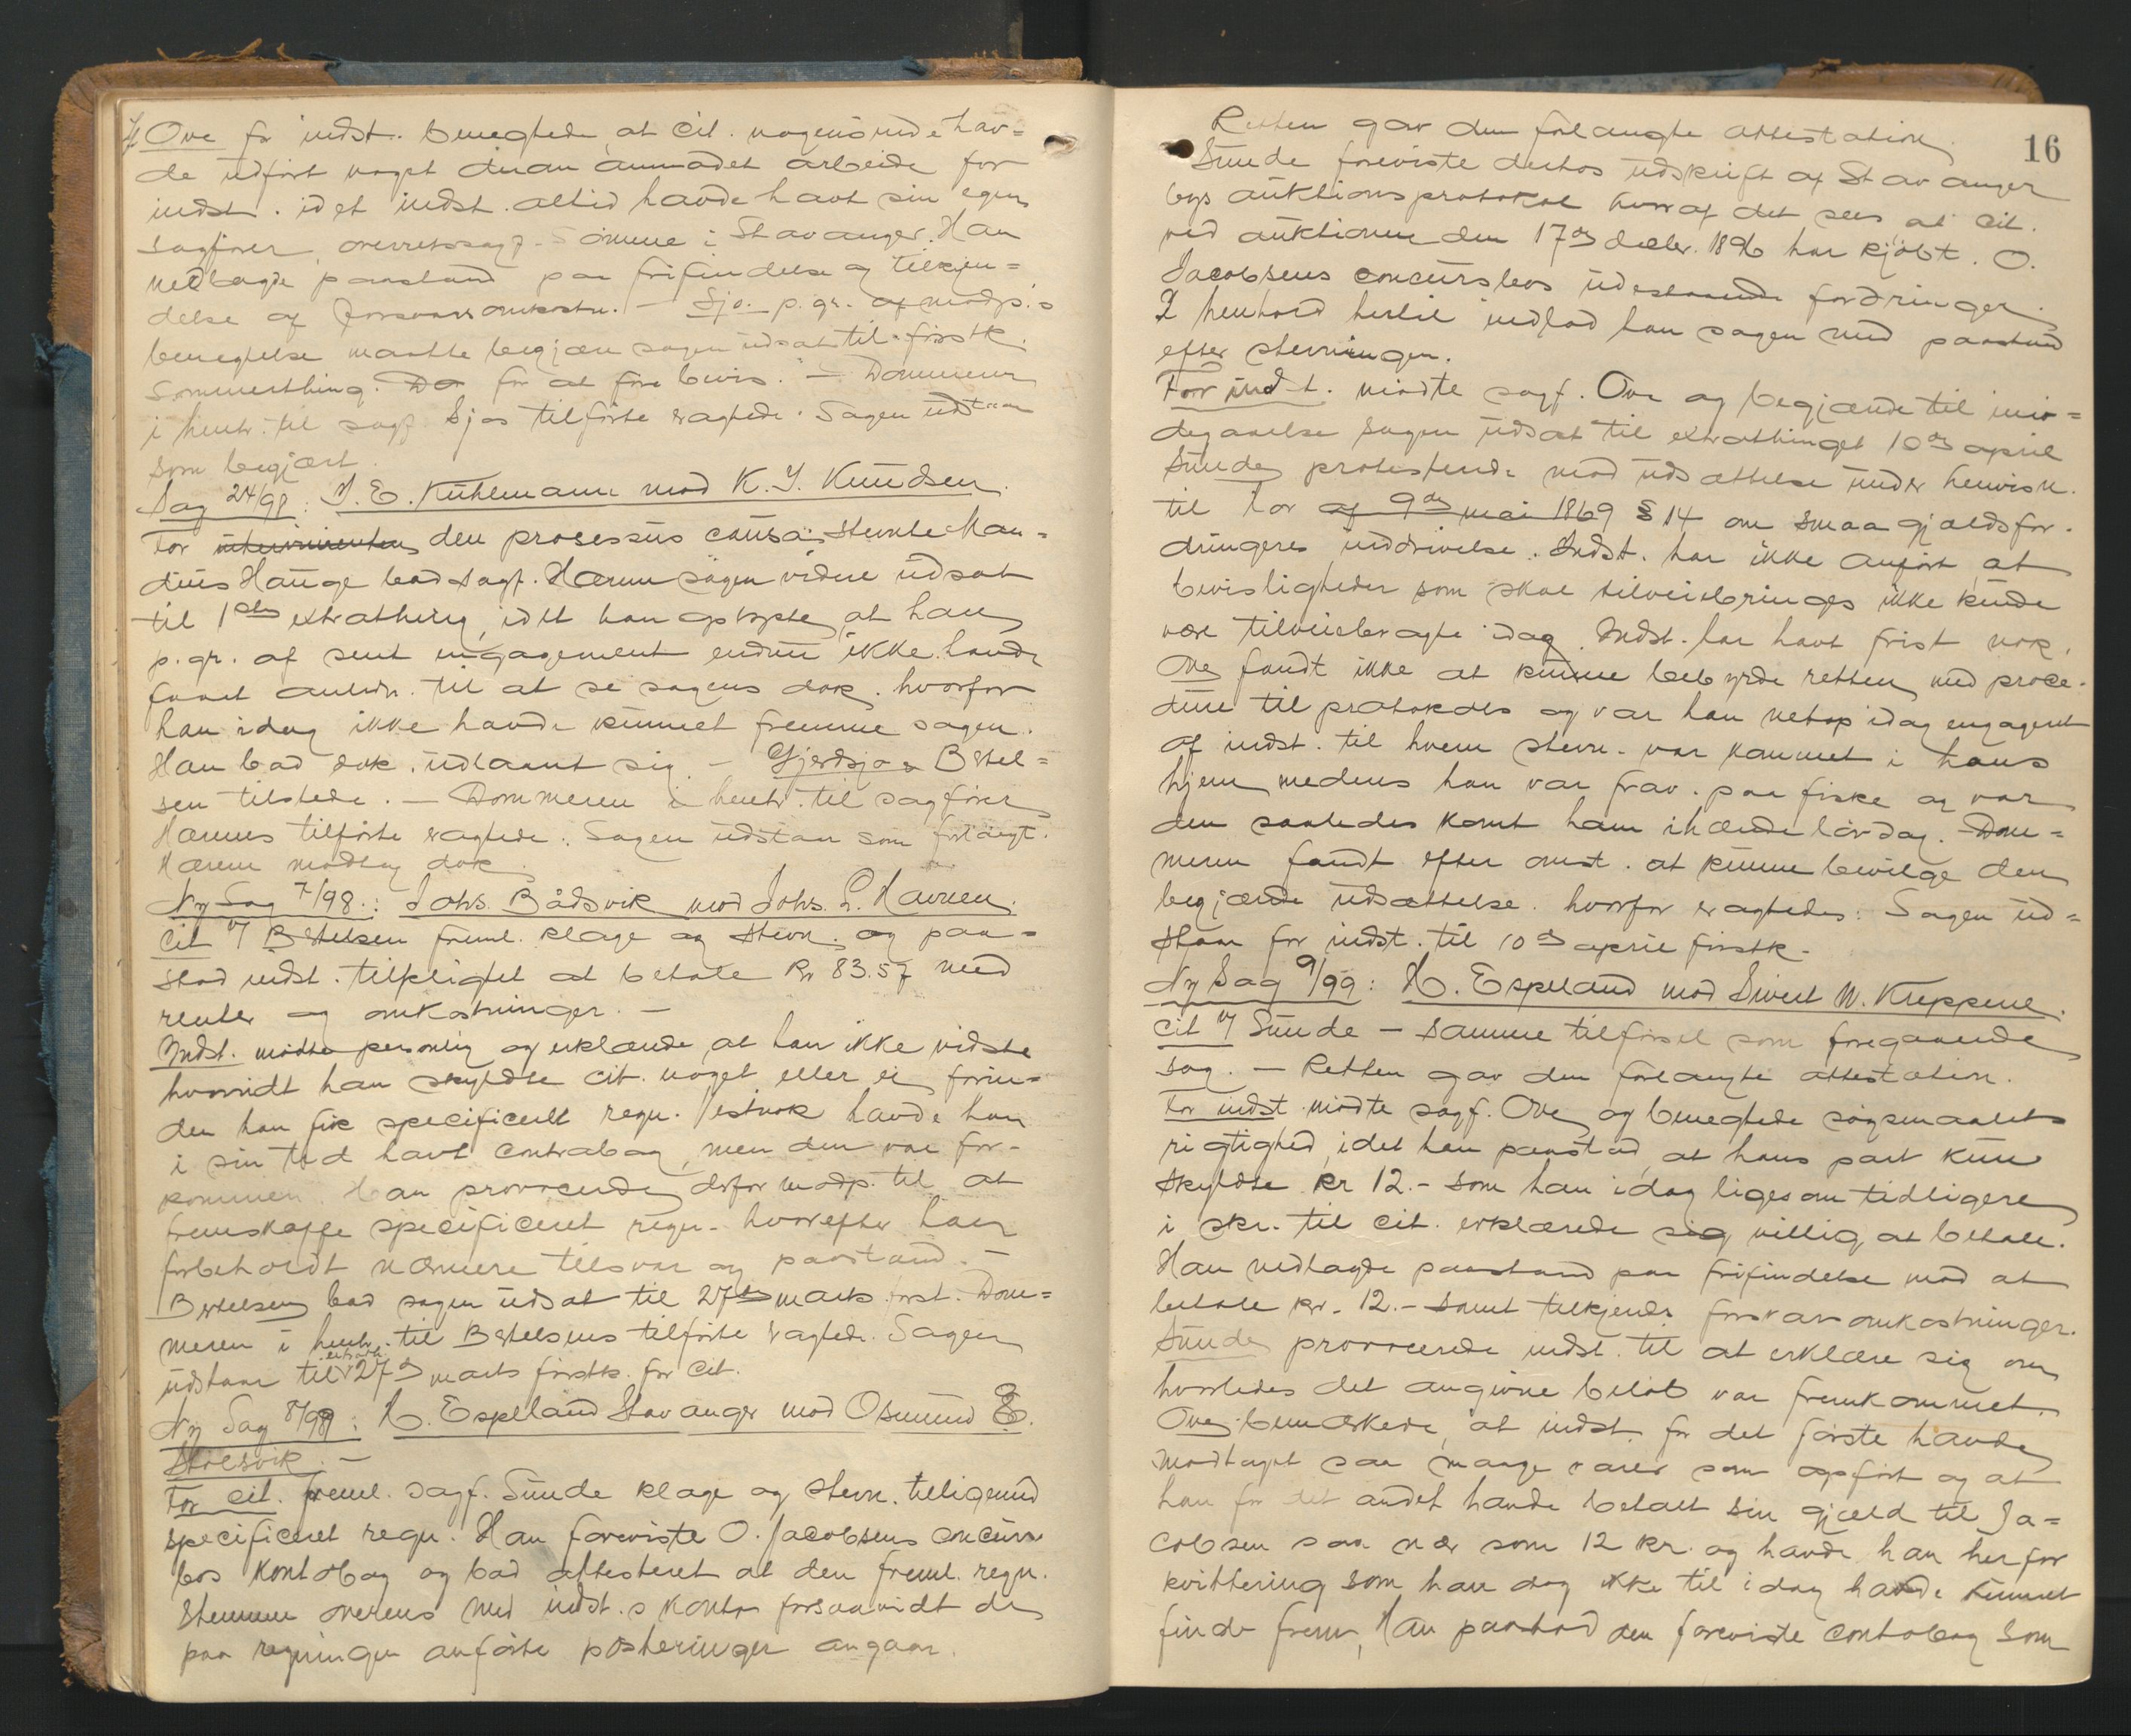 Ove for indst. benegtede at cit. nogensinde hav=
de udført noget arbeide for
indst. idet indst. altid havde havt sin egen
sagfører, overretssagf. Sømme i Stavanger. Han
nedlagde paastand paa frifindelse og tilkjen=
delse af forsvarsomkostn. — Sjo. p. gr. af modp.s
benegtelse maatte begjære sagen udsat til førstk.
sommerthing. for at føre bevis. — Dommeren
i henh. til sagf Sjos tilførte eragtede: Sagen udstaar
som begjært.
Sag 24/98: J. E. Kühlmann mod K. J. Knudsen.
For den prosessus causa stevnte Man=
dius Hauge bad sagf. Hærem sagen videre udsat
til 1ste extrathing, idet han oplyste, at han
p. gr. af sent engagement endnu ikke havde
faaet anledn. til at se sagens dok. hvorfor
han idag ikke havde kunnet fremme sagen.
Han bad dok. udlaant sig. — Gjerdsjo & Bertel=
sen tilstede. — Dommeren i henh. til sagfører
Hærems tilførte eragtede: Sagen udstaar som forlangt.
Hærem modtog dok.
Ny Sag 7/98: Johs. Bådsvik mod Johs. L. Havreen.
Cit v/ Bertelsen freml. klage og stevn. og paa=
stod indst. tilpligtet at betale Kr 83.57 med
renter og omkostninger. —
Indst. mødte personlig og erklærede, at han ikke vidste
hvorvidt han skyldte cit. noget eller ei, forin=
den han fik specificeret regn. Istnok havde han
i sin tid havt contrabog, men den var for-
kommen. Han provocerede derfor modp. til at
fremskaffe specificeret regn. hvorefter han
forbeholdt nærmere tilsvar og paastand. —
Bertelsen bad sagen udsat til 27de marts først. Dom=
meren i henh. til Bertelsens tilførte eragtede: Sagen
udstaar til extrath. 27de marts førstk. for cit.
Ny Sag 8/99: H. Espeland Stavanger mod Osmund E.
Stolsvik. —
For cit. freml. sagf. Sunde klage og stevn. tilligemed
specificeret regn. Han foreviste O. Jacobsens concurs
bos kontobog og bad attesteret at den freml. regn.
stemme overens med indst.s konto forsaavidt de
paa regningen anførte posteringer angaar.
16
Retten gav den forlangte attestation.
Sunde foreviste derhos udskrift af Stavanger
bys auktionsprotokol hvoraf det sees, at cit.
ved auktionen den 17de decbr. 1896 har kjøbt. O.
Jacobsens concursbos udestaaende fordringer.
I henhold hertil indlod han sagen med paastand
efter stevningen.
For indst. mødte sagf. Ove og begjærede til imø=
degaaelse sagen udsat til extrathinget 10de april
Sunde protesterede mod udsættelse under henvisn.
til lov af 9de mai 1869 § 14 om smaa gjældsfor-
dringers inddrivelse. Indst. har ikke anført, at
bevisligheder som skal tilveiebringes ikke kunde
være tilveiebragte idag. Indst. har havt frist nok.
Ove fandt ikke at kunne bebyrde retten med proce-
dure til protokols og var han netop idag engageret
af indst. til hvem stevn. var kommet i hans
hjem medens han var frav. paa fiske og var
den saaledes komt ham ihænde lørdag. Dom=
meren fandt efter omst. at kunne bevilge den
begjærede udsættelse. hvorfor eragtedes: Sagen ud=
staar for indst. til 10de april førstk.
Ny Sag 9/99: H. Espeland mod Sivert N. Kreppene.
Cit v/ Sunde — samme tilførsel som foregaaende
sag. — Retten gav den forlangte attestation.
For indst. mødte sagf. Ove og benegtede søgsmaalets
rigtighed, idet han paastod, at hans part kun
skyldte Kr 12.- som han idag ligesom tidligere
i skr. til cit. erklærede sig villig at betale.
Han nedlagde paastand paa frifindelse mod at
betale kr. 12.- samt tilkjende forsvarsomkostninger.
Sunde provocerede indst. til at erklære sig om
hvorledes det angivne beløb var fremkommet.
Ove bemærkede, at indst. for det første havde
modtaget saa mange varer som opført og at
han for det andet havde betalt sin gjæld til Ja=
cobsen saa nær som 12 kr. og havde han herfor
kvittering som han dog ikke til idag havde kunnet
finde frem, Han paastod den foreviste contobog som